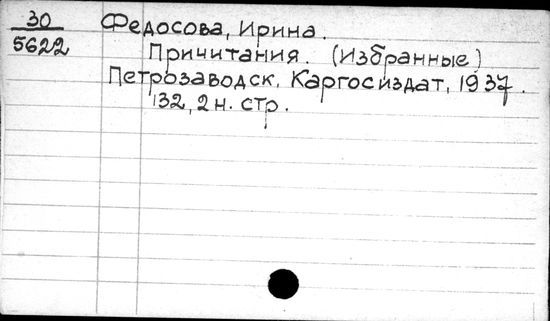 30 Федосова, Ирина.
5622 Причитания. (Избранные)
Петрозаводск, Каргосиздат, 1937.
132, 2 н. стр.